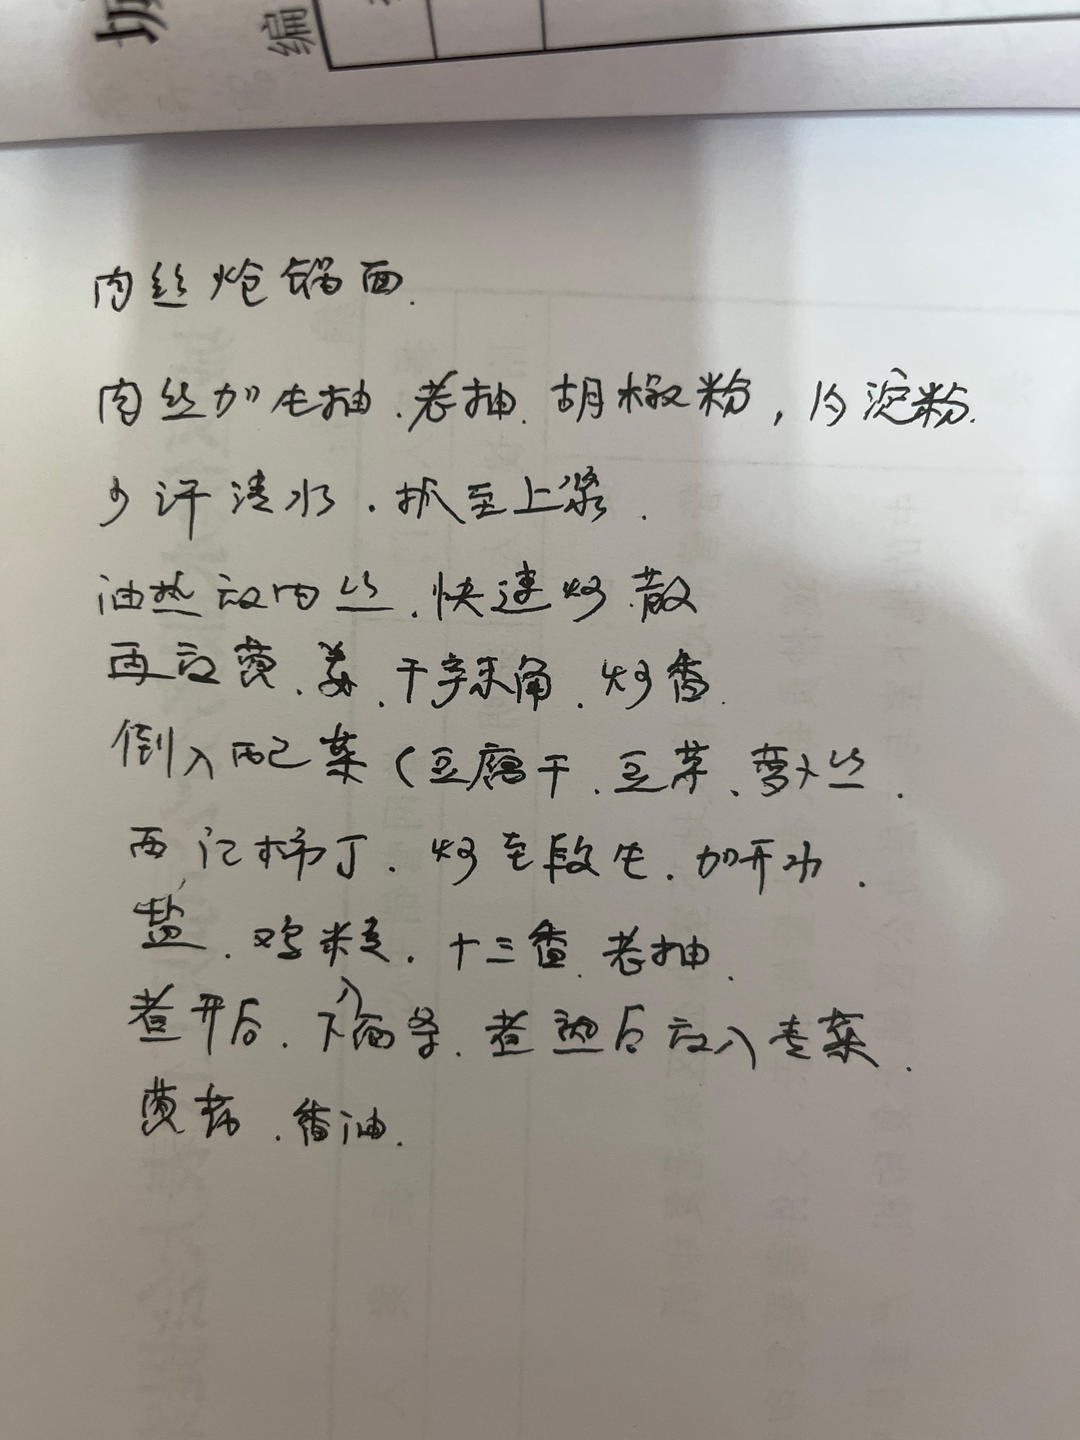 编
肉丝炝锅面.
肉丝加生抽、老抽、胡椒粉，淀粉.
少许清水、抓至上浆.
油热放肉丝、快速炒散
再放葱、姜、干辣角、炒香.
倒入配菜（豆腐干、豆芽、萝卜丝、
西红柿丁、炒至段生、加开水、
盐、鸡精、十三香、老抽、
煮开后、下入面条、煮熟后放入青菜、
葱花、香油.